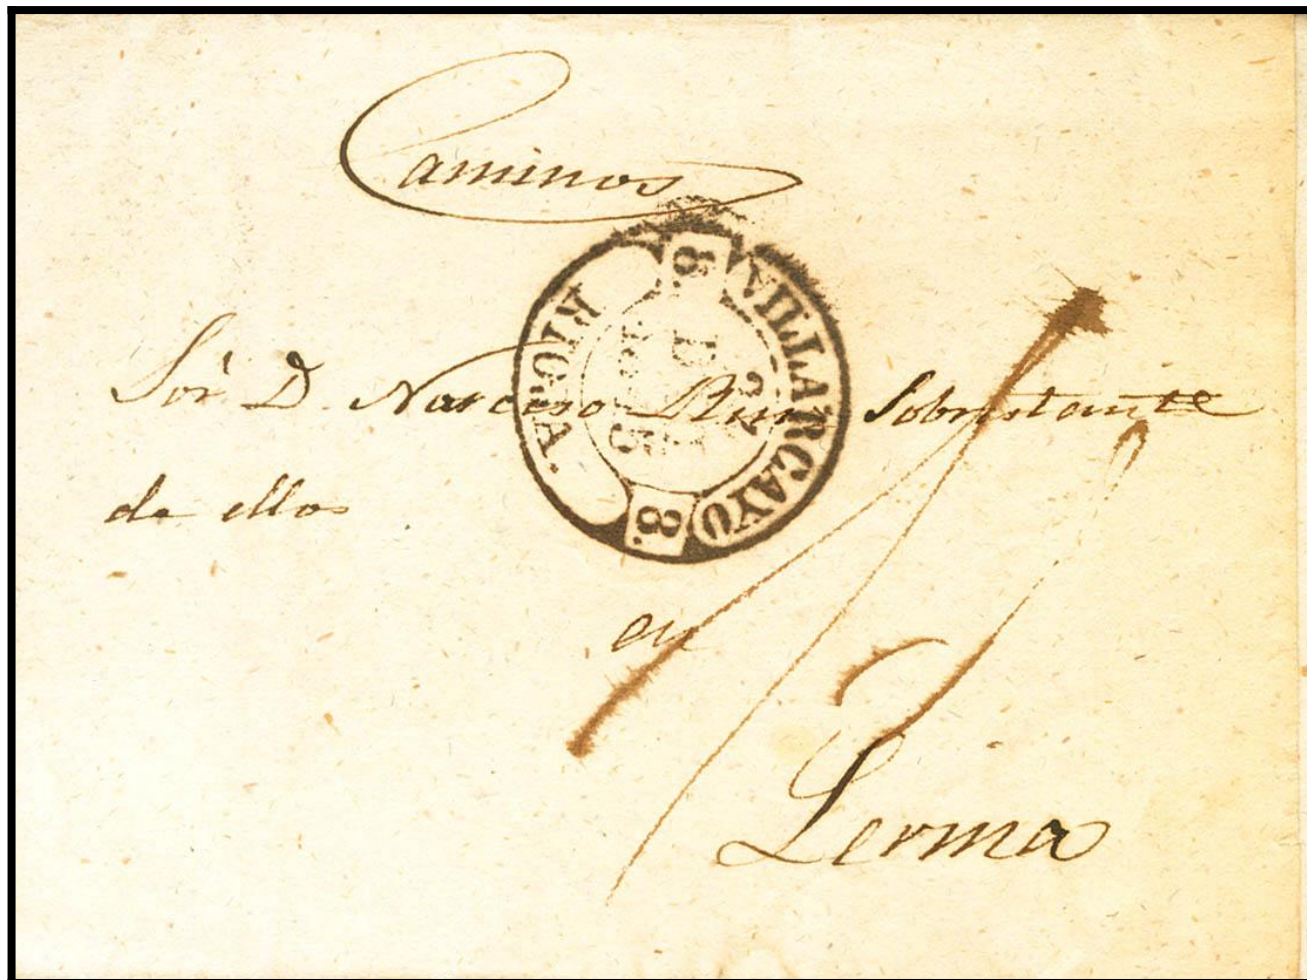 Caminos
8
VILLARCAYO
8
RIOJA.
Sor D. Narciso Ruiz Sobrestante
de ellos
en
Lerma